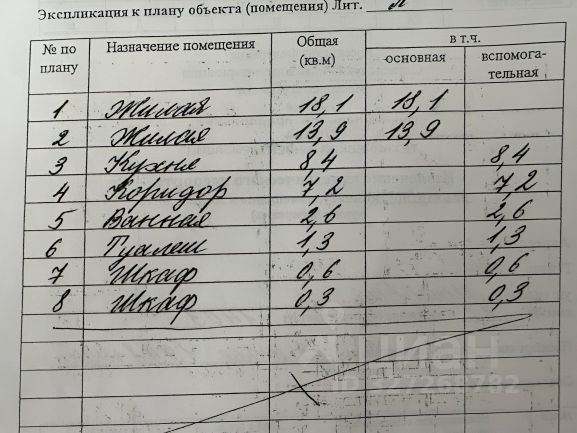 Экспликация к плану объекта (помещения) Лит.
№ по плану Назначение помещения Общая (кв.м) в т.ч.
основная вспомога-тельная
1 Жилая 18,1 18,1
2 Жилая 13,9 13,9
3 Кухня 8,4 8,4
4 Коридор 7,2 7,2
5 Ванная 2,6 2,6
6 Туалет 1,3 1,3
7 Шкаф 0,6 0,6
8 Шкаф 0,3 0,3
циан